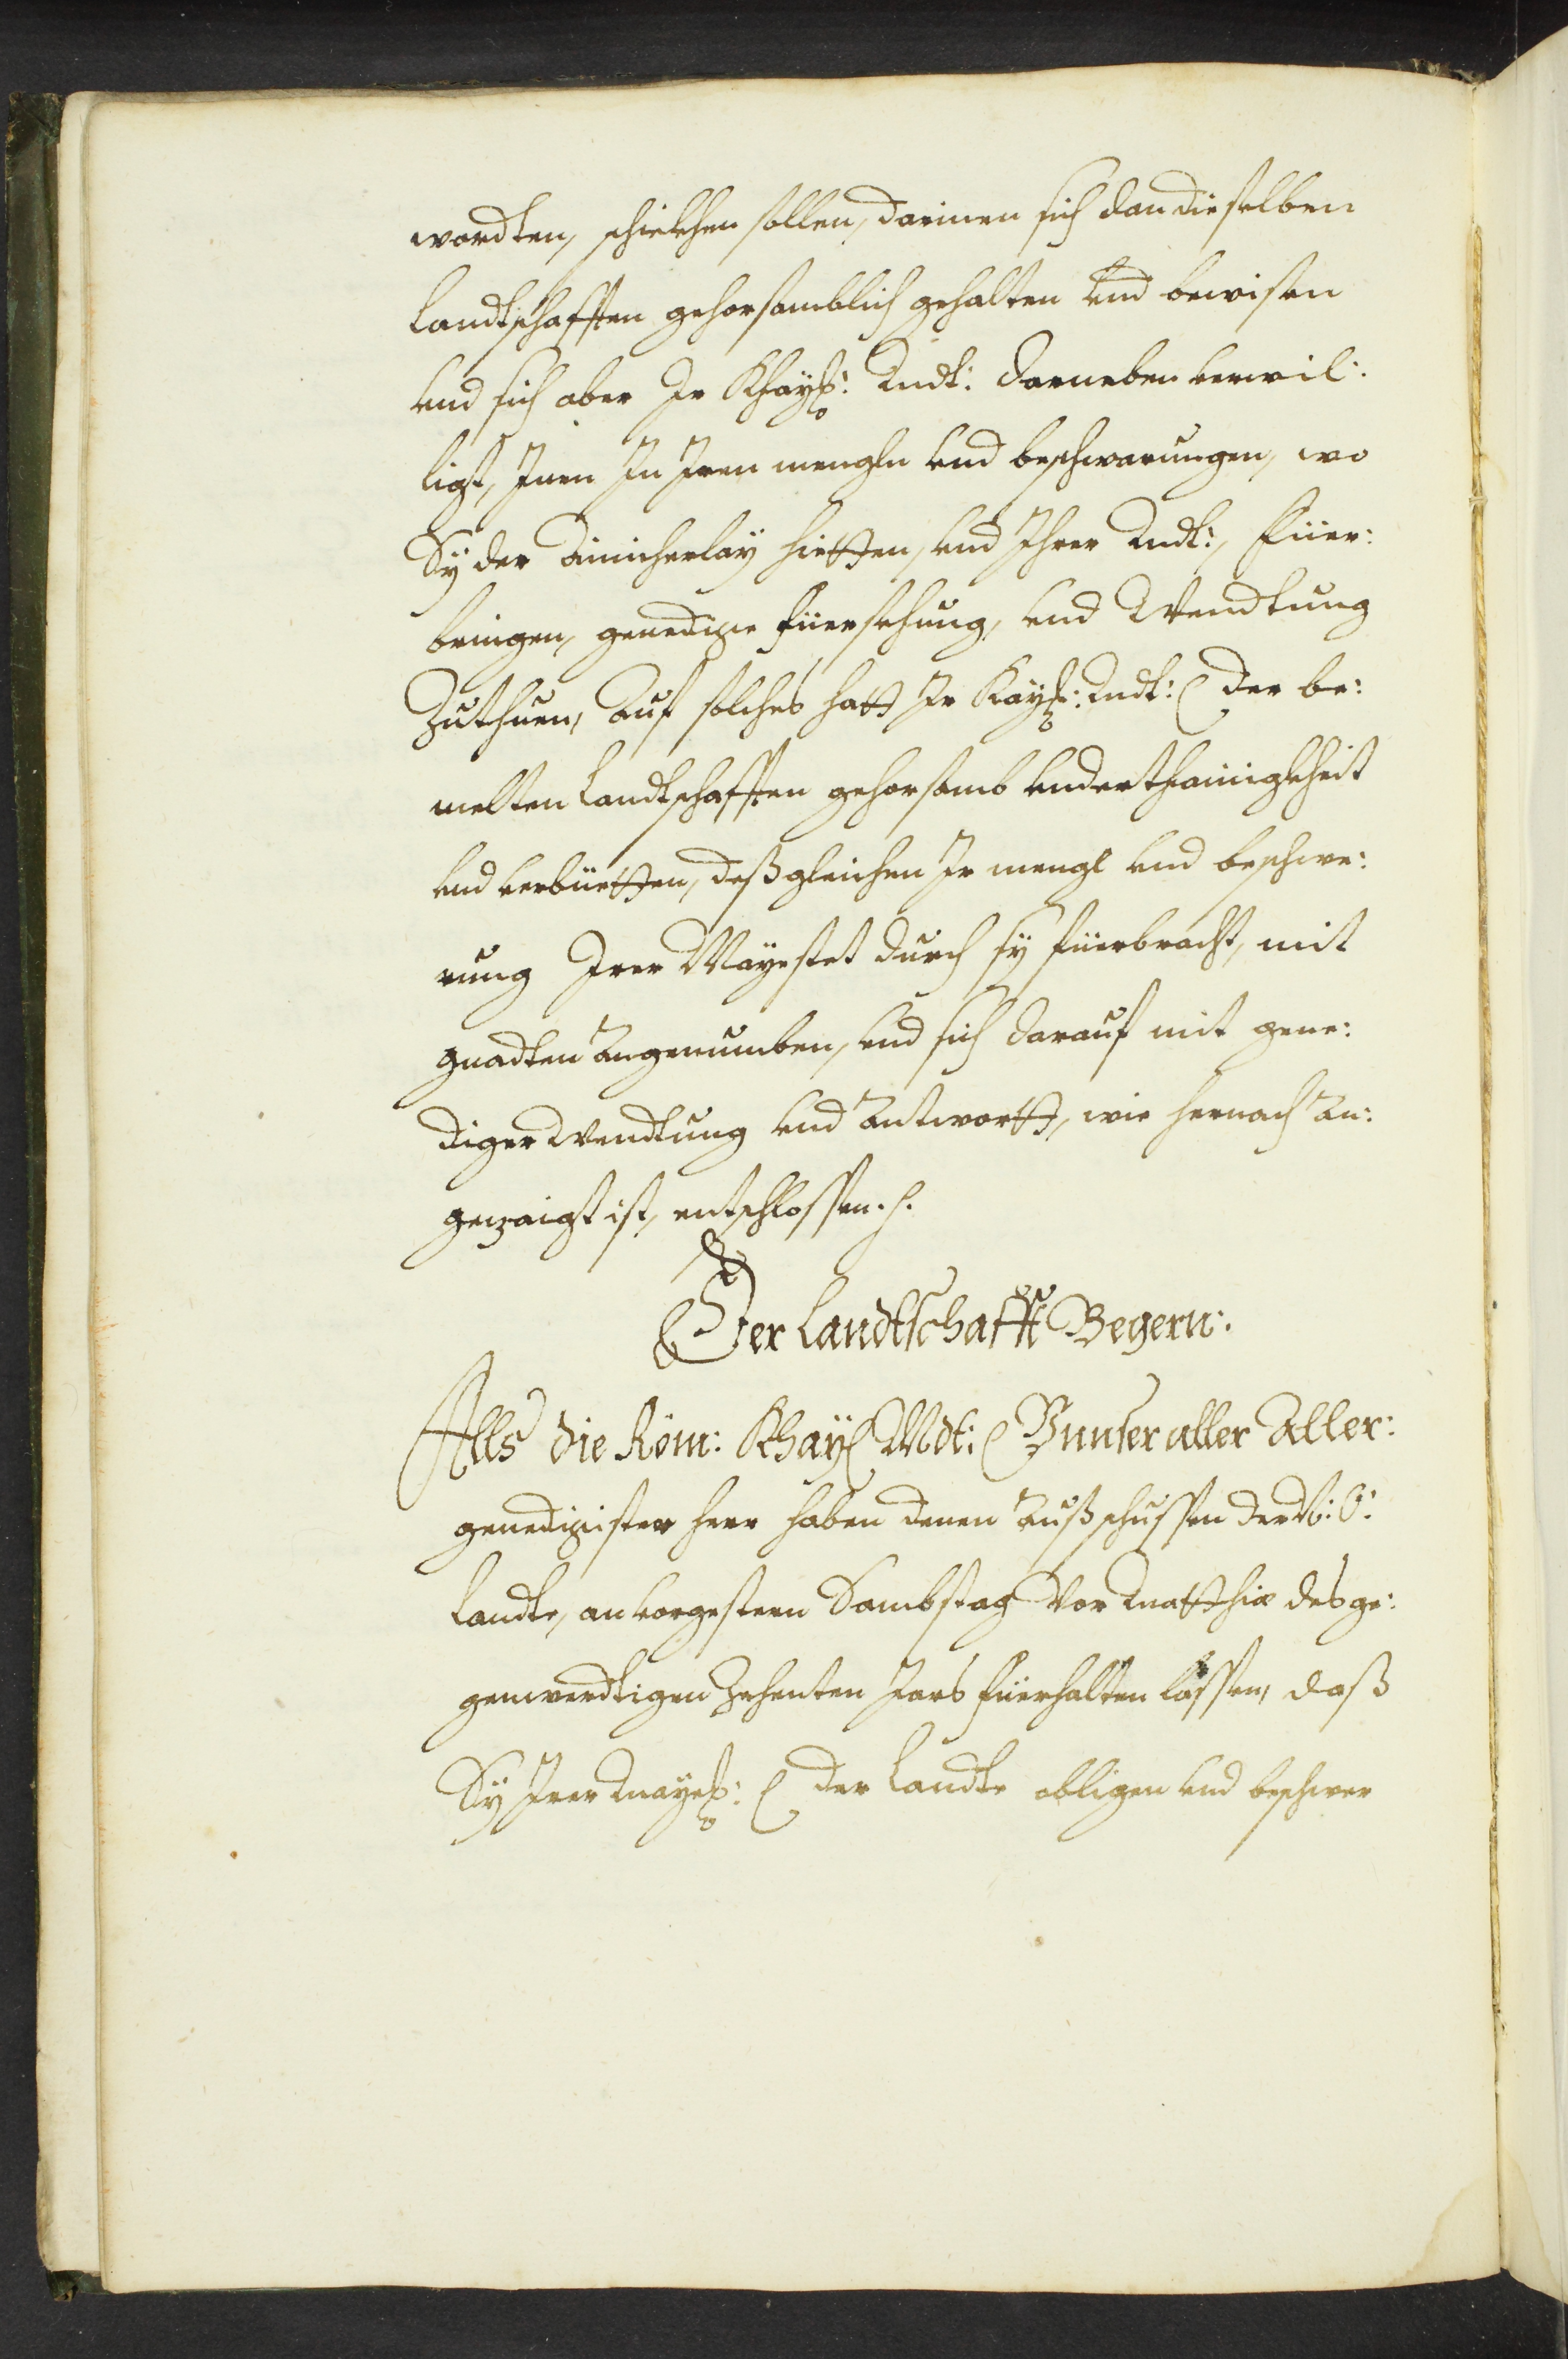 wordten, schickhen sollen, darinnen sich dan dieselben
Landtschafften gehorsamblich gehalten vnd bewisen
vnd sich aber Ir Khays: Mdt: darneben verwil:
ligt, Inen In Iren mengln vnd beschwarungen, wo
Sy der ainicherlay hietten, vnd Ihrer Mdt:, füer:
bringen, genedige fürsehung, vnd Wendtung
Zuthuen, Auf solches hatt Ir Kays: Mdt: der be:
melten Landtschafften gehorsamb vnderthainigkheit
vnd erbietten, deßgleichen Ir mengl vnd beschwe:
rung Irer Mayestet durch sy füerbracht, mit
gnadten Angenumben, vnd sich darauf mit gene:
diger Wendtung vnd Antwortt, wie hernach An:
gezaigt ist, entschlossen.
Der Landtschafft Begern:
Alls die Röm: Khay Mdt: Vnnser aller Aller:
genedigister Herr haben denen Außschussen der N: Ö:
Landte, an vorgestern Sambstag Vor Matthiæ des ge:
genwerdtigen Zehenten Jars fürhalten lassen, daß
Sy Irer Mayes: der Landte obligen vnd beschwer